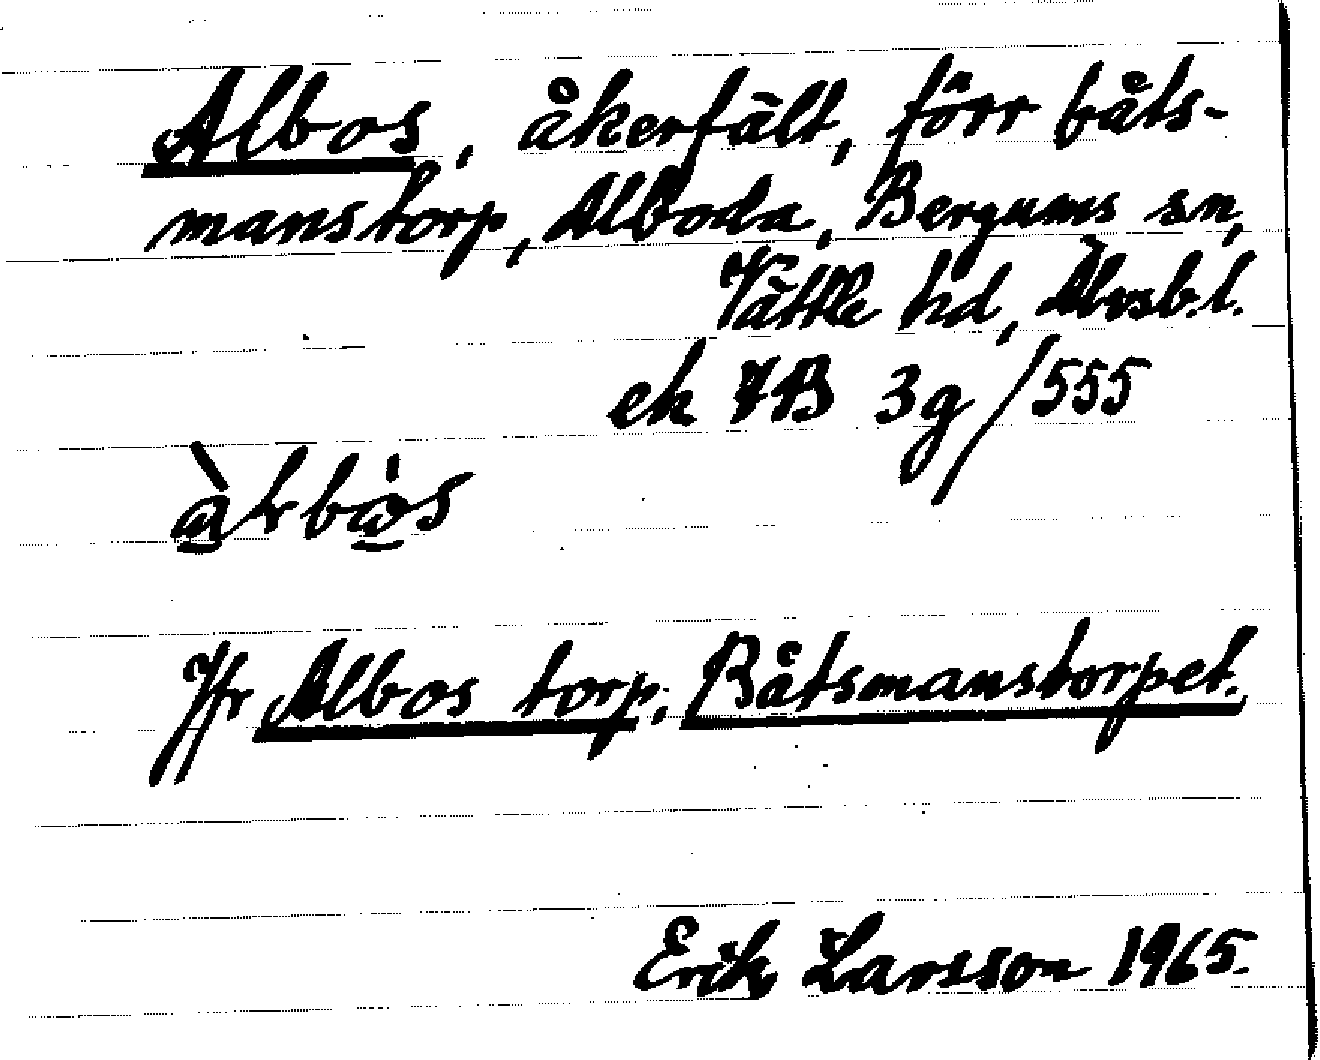 Albos, åkerfält, förr båts-
manstorp, Alboda, Bergums sn,
Vättle hd, Älvsb.l.
ek 7B 3g/555
Jfr Albos torp, Båtsmanstorpet.
Erik Larsson 1965.